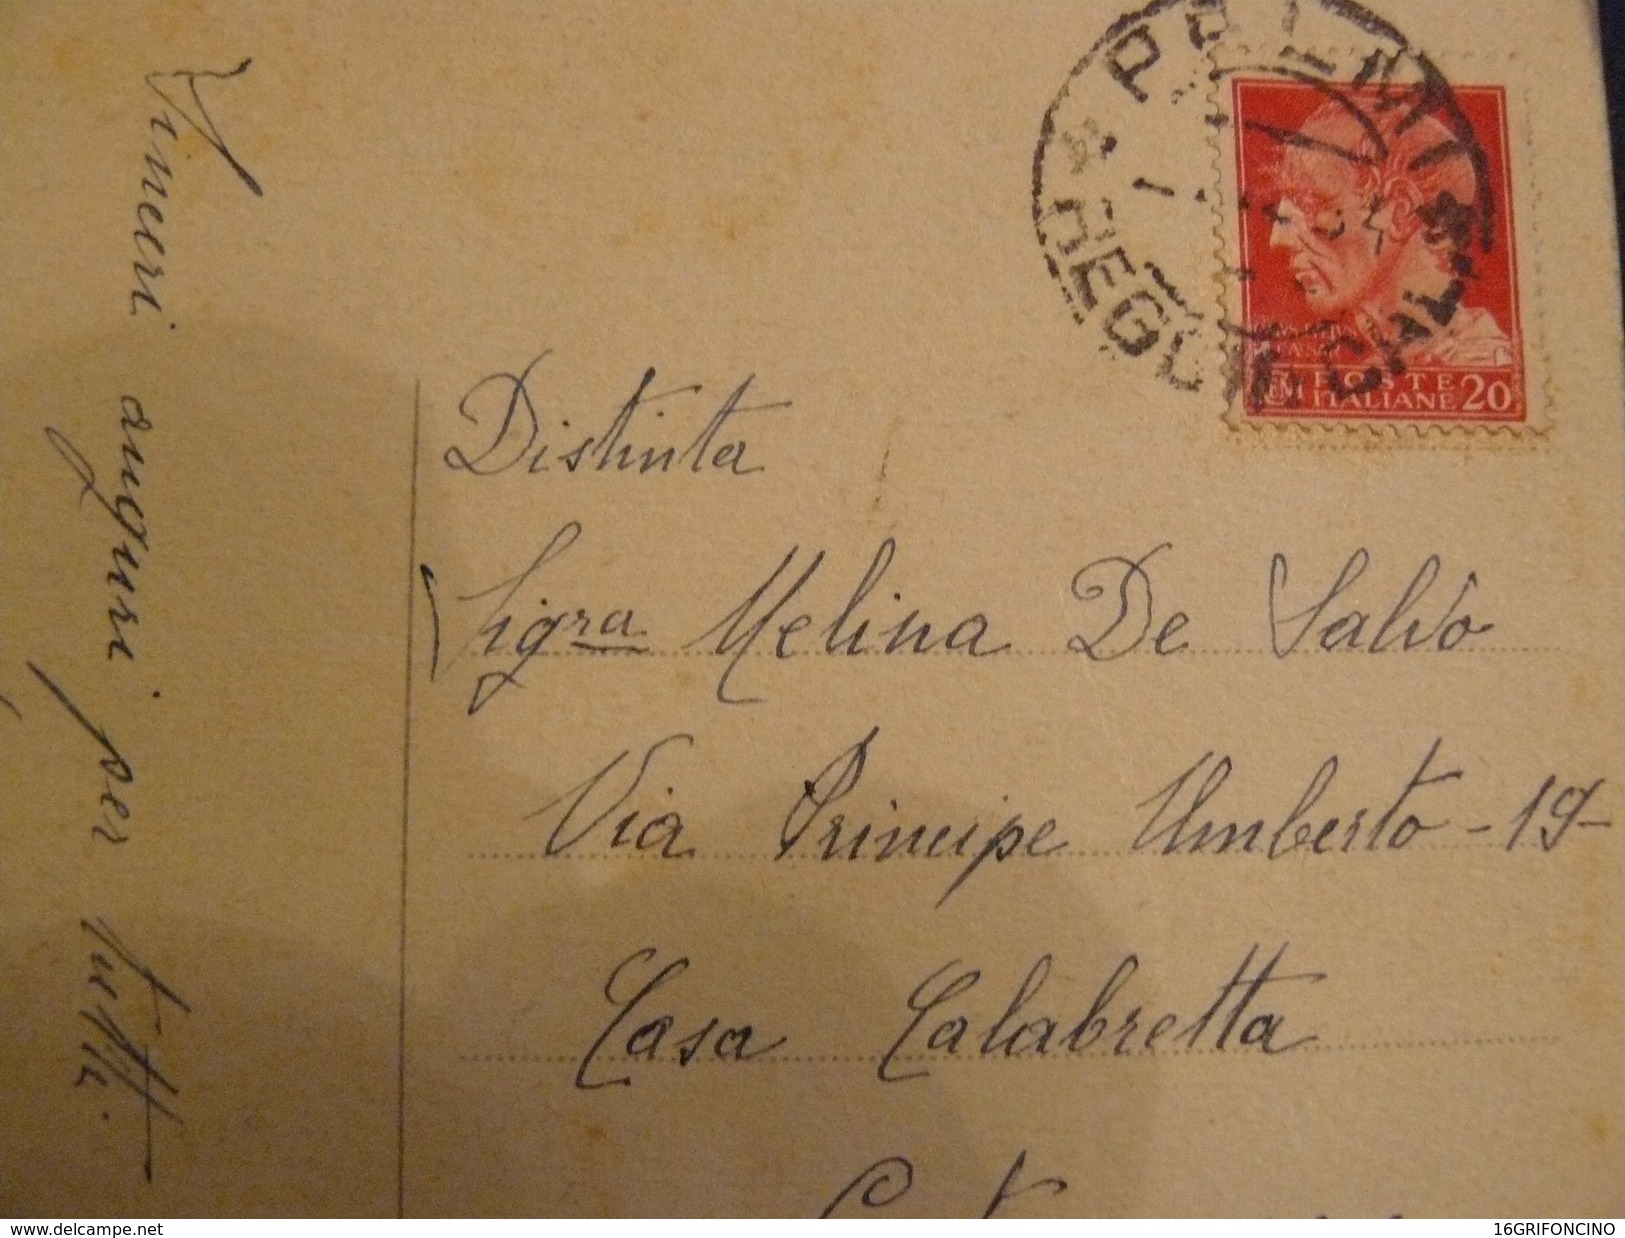 Sinceri auguri per tutti.
PALMI
REGGIO CALABRIA
POSTE
ITALIANE 20
Distinta
Sigra Melina De Salvo
Via Principe Umberto - 19 -
Casa Calabretta
www.delcampe.net
16GRIFONCINO